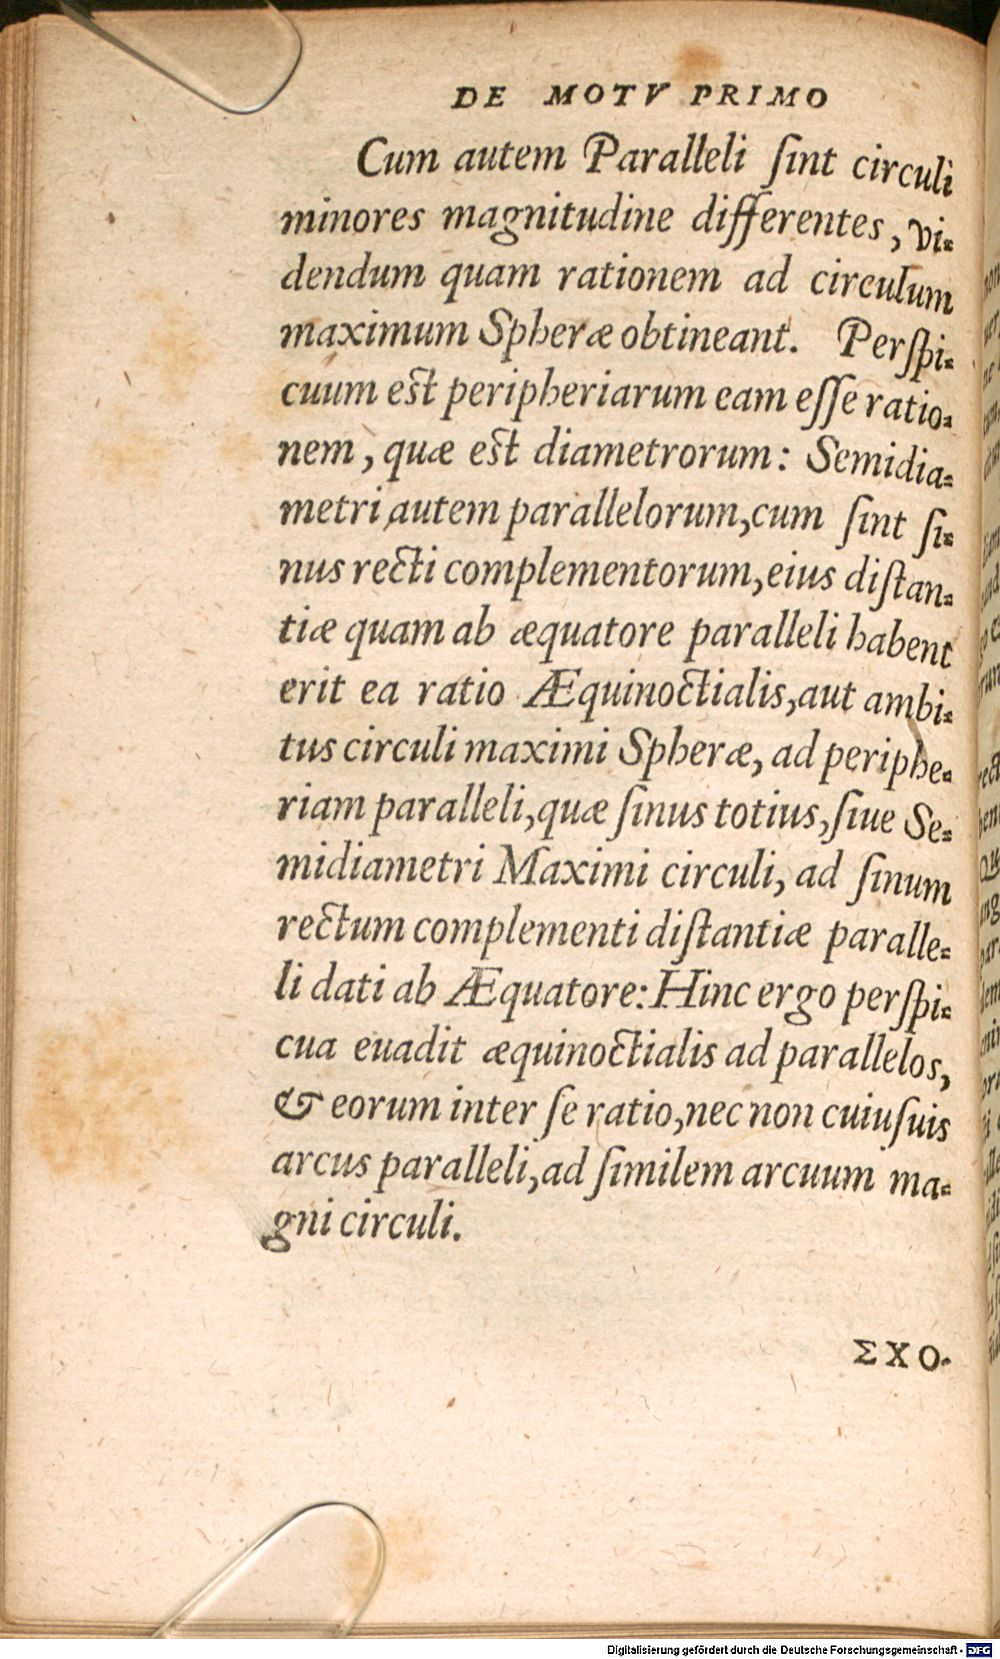 DE MOTV PRIMO
Cum autem Paralleli ſint circuli
minores magnitudine differentes, vi-
dendum quam rationem ad circulum
maximum Spheræ obtineant. Perſpi-
cuum est peripheriarum eam eſſe ratio-
nem, quæ est diametrorum: Semidia-
metri autem parallelorum, cum ſint ſi-
nus recti complementorum, eius diſtan-
tiæ quam ab æquatore paralleli habent
erit ea ratio Æquinoctialis, aut ambi-
tus circuli maximi Spheræ, ad periphe-
riam paralleli, quæ ſinus totius, ſiue Se-
midiametri Maximi circuli, ad ſinum
rectum complementi diſtantiæ paralle-
li dati ab Æquatore: Hinc ergo perſpi-
cua euadit æquinoctialis ad parallelos,
& eorum inter ſe ratio, nec non cuiuſuis
arcus paralleli, ad ſimilem arcuum ma-
gni circuli.
ΣΧΟ-
Digitalisierung gefördert durch die Deutsche Forschungsgemeinschaft - DFG